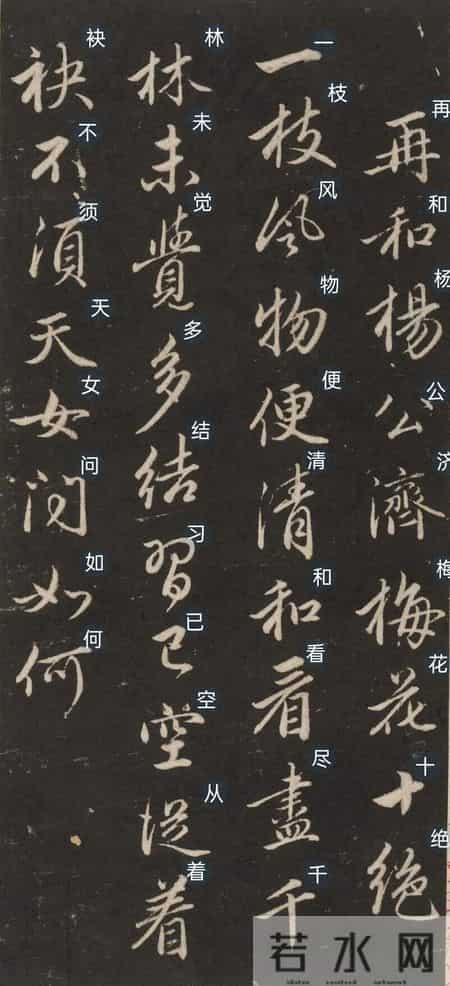 再和楊公濟梅花十絕
再和杨公济梅花十绝
一枝風物便清和看盡千
一枝风物便清和看尽千
林未覺多結習已空從着
林未觉多结习已空从着
袂不須天女問如何
袂不须天女问如何
若水网